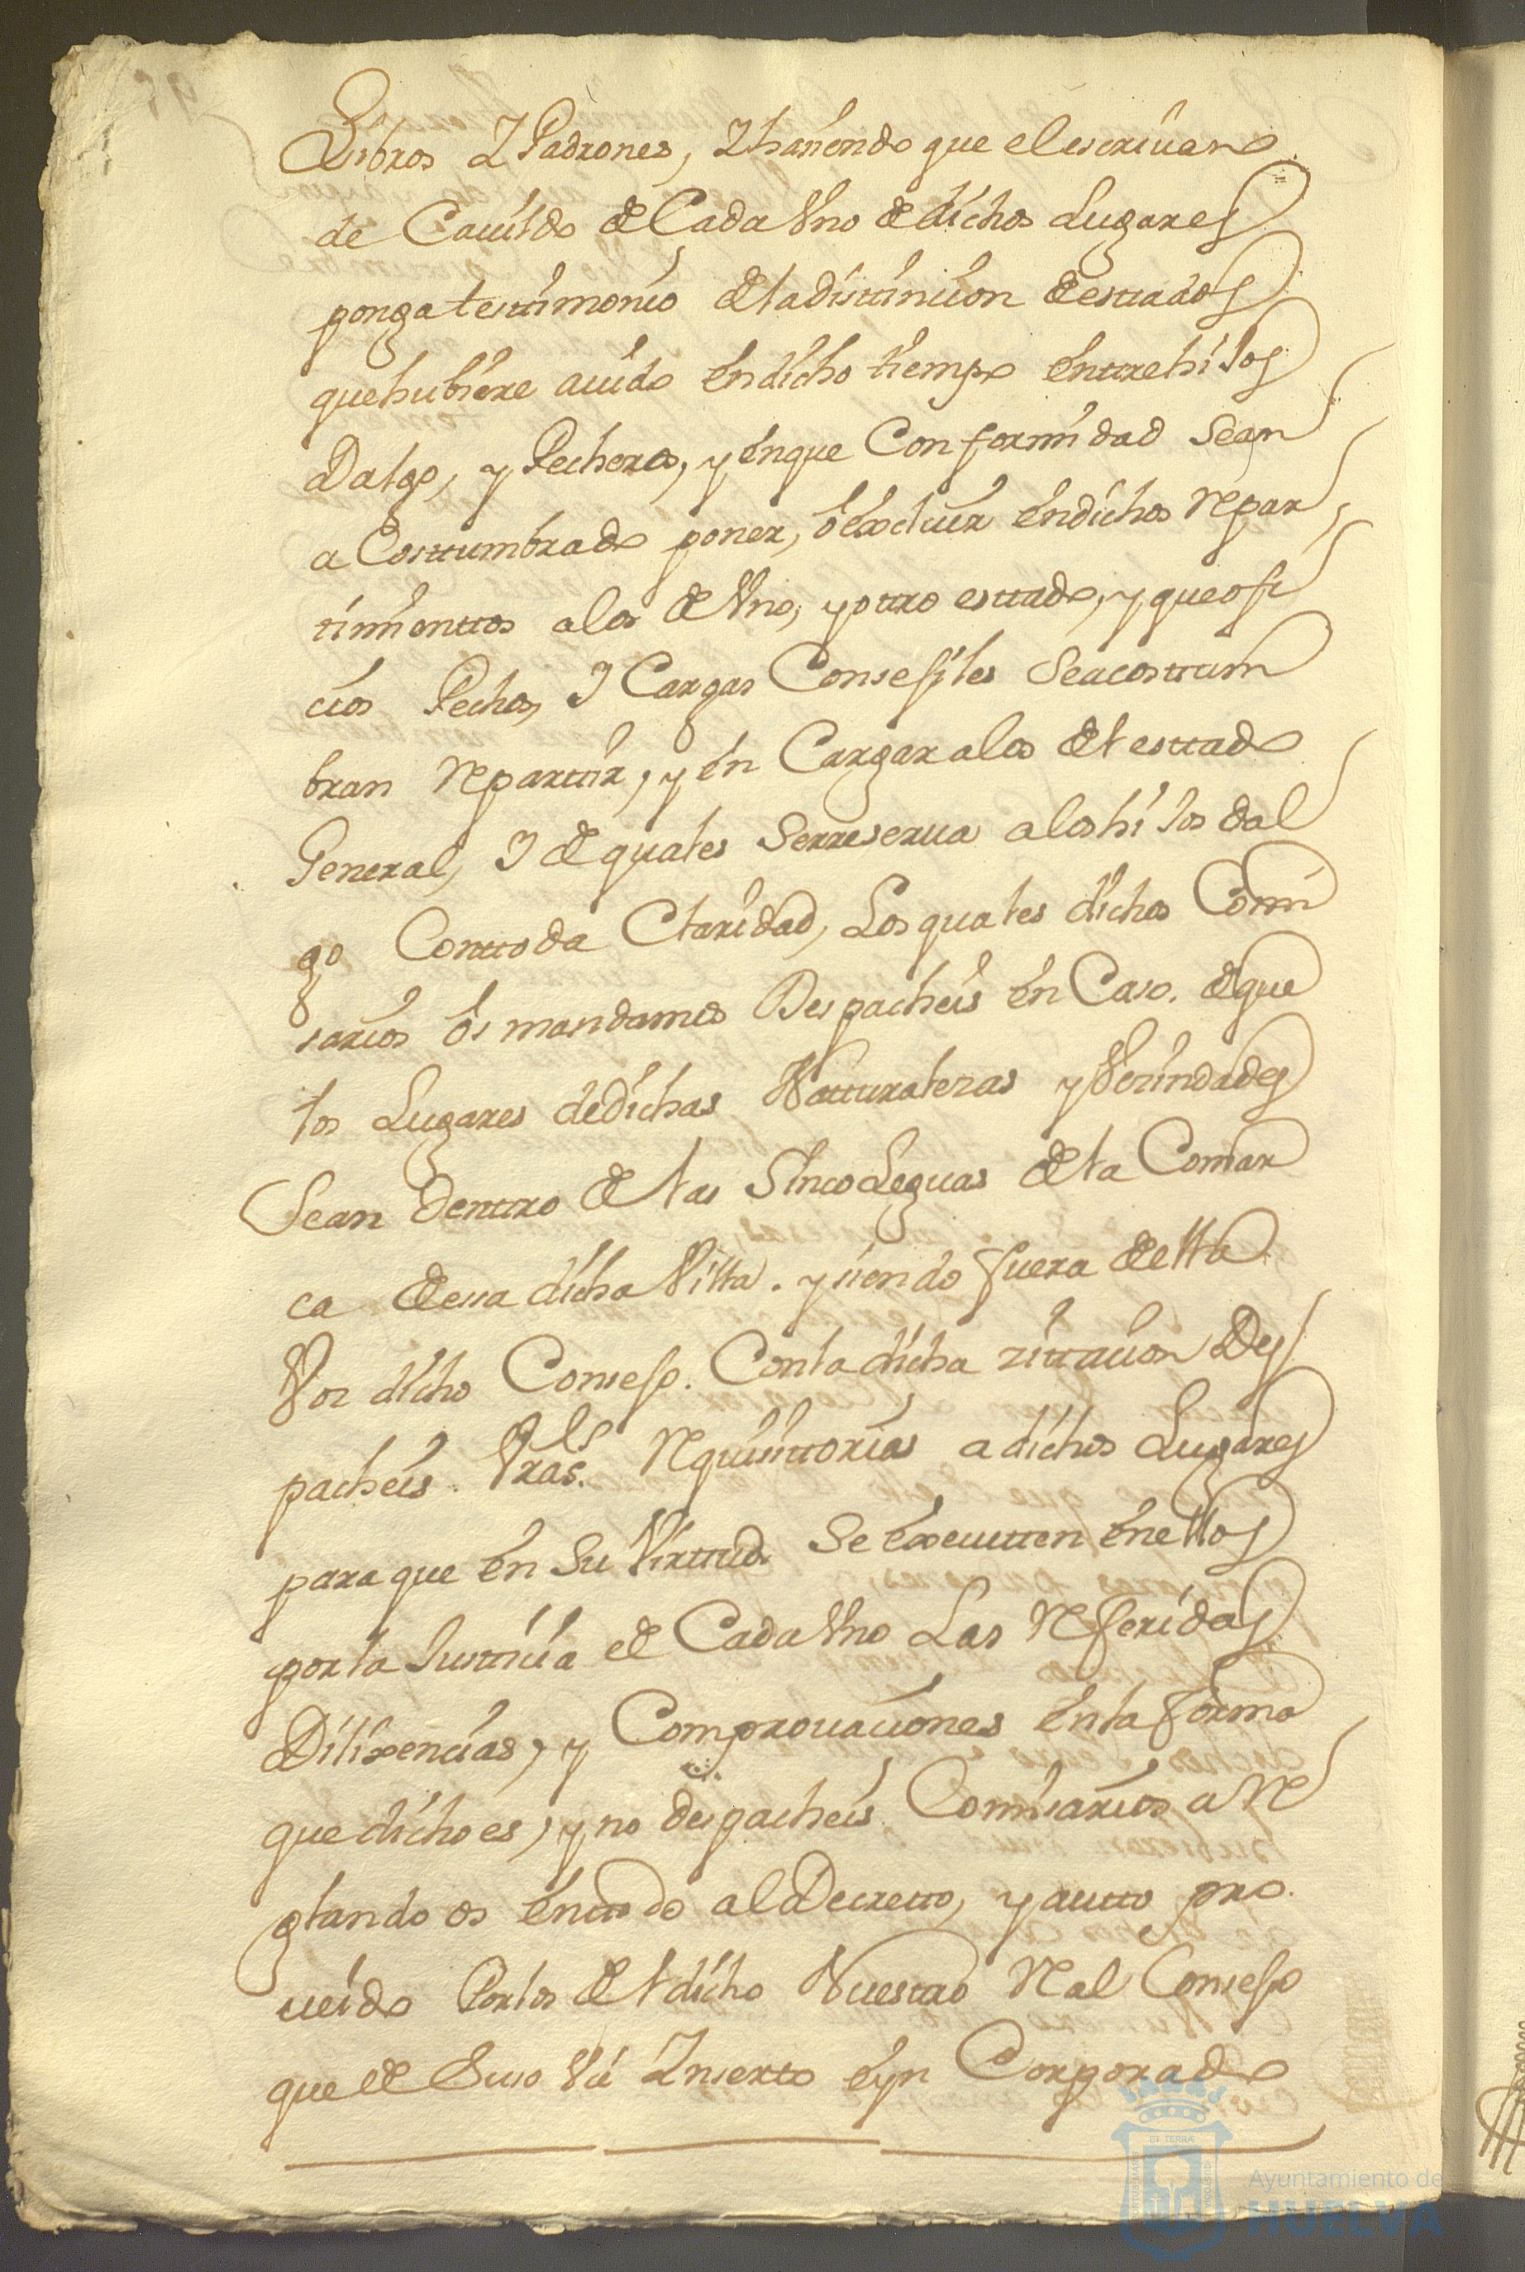 Libros Y Padrones, Y haciendo que el escriuano
de Cauildo de Cada Vno de dichos Lugares
ponga testtimonio de la disttincion de esttados
que hubiere auido en dicho tiempo enttre hiJos
Dalgo, y Pecheros, y en que Conformidad Sean
a Costtumbrado poner, ó excluir en dichos Repar
timienttos a los de Vno, y ottro esttado, y que ofi
cios Pechos, Y Cargas Consejiles Se acosttum
bran Reparttir, y en Cargar a los del esttado
General, Y de quales Serreserua a los hiJos dal
go Con ttoda Claridad, Los quales dichos Comi
sarios os mandamos Despacheis en Caso. de que
los Lugares de dichas Natturalezas y Vecindades
Sean Denttro de las Sinco Leguas de la Comar
ca de esa dicha Villa. y siendo fuera de ella
Vos dicho Consejo. Con la dicha zittacion Des
pacheis. Vras. Requisittorias a dichos Lugares
para que en Su Virttud Se executten en ellos
por la Justticia de Cada Vno Las Referidas
Dilixencias, y Comprouaciones en la forma
que dicho es, y no despacheis Comisarios a Re
glando os en ttodo al Decretto, y autto pro
ueido Por los del dicho Nuesttro Real Consejo
que de Suso Vá Ynserto e yn Corporado
ET TERRÆ
Ayuntamiento de
HUELVA